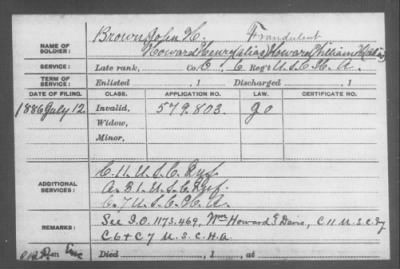 Brown John H. Fraudulent
NAME OF SOLDIER: Howard Henry (alias) Howard William H. (alias)
SERVICE: Late rank, Co. C, 6 Reg't U.S.C.H.A.
TERM OF SERVICE: Enlisted , 1 Discharged , 1
DATE OF FILING. CLASS. APPLICATION NO. LAW. CERTIFICATE NO.
1886 July 12 Invalid, 579.803. go
Widow,
Minor,
C. 11. U.S.C. Inf.
ADDITIONAL SERVICES: A. 81. U.S.C. Inf.
C. 7 U.S.C.H.A.
REMARKS: See I.O. 1173.469, Wm Howard G Davis, C 11 U.S.C. Inf
C 6 & C 7 U.S.C.H.A.
Died , 1 , at